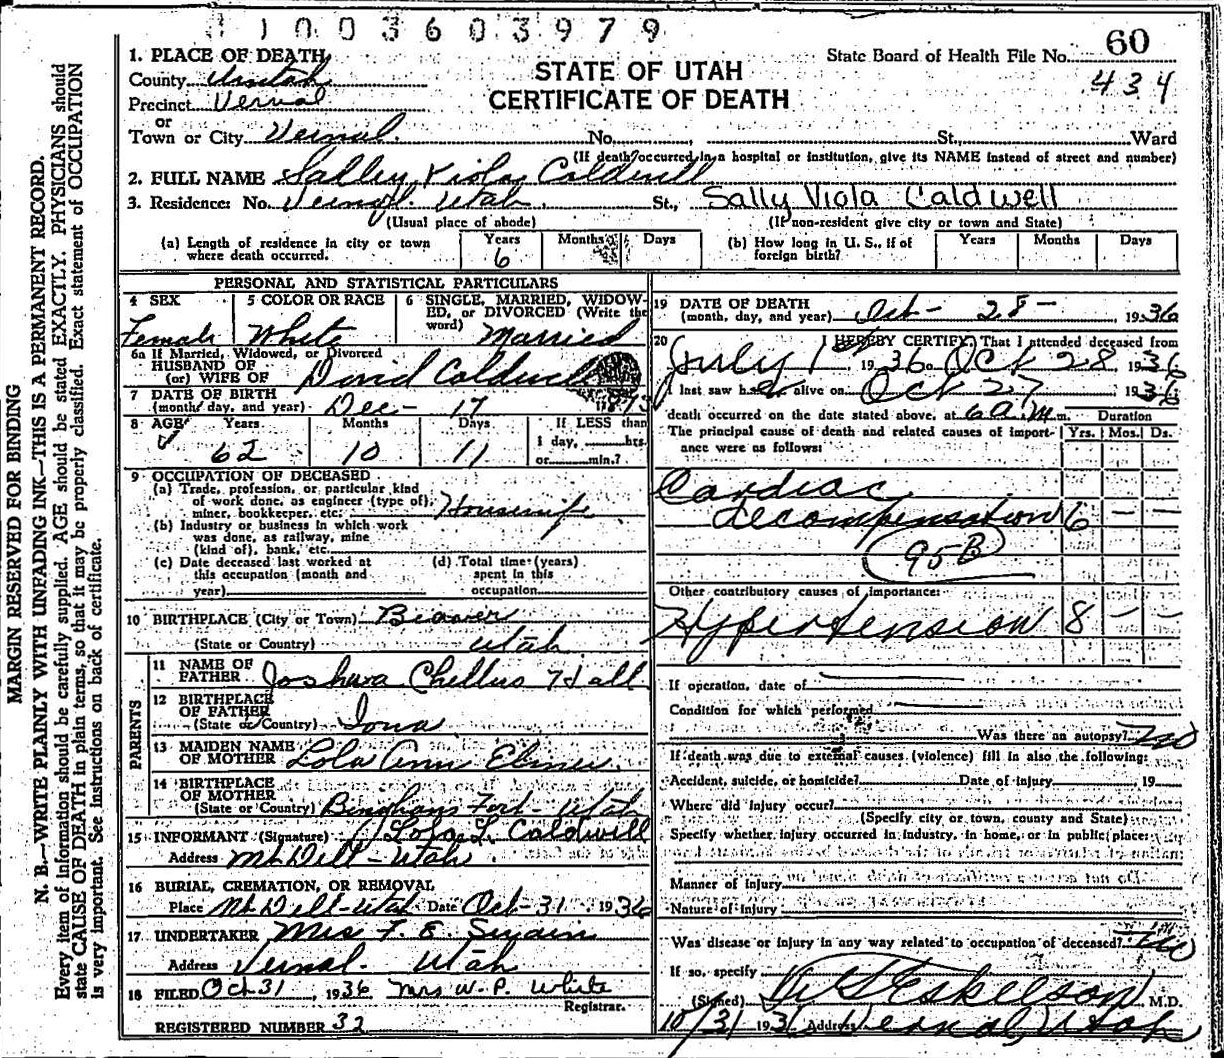 1003603979
60
State Board of Health File No.
434
1. PLACE OF DEATH
County Uintah
STATE OF UTAH
Precinct Vernal
CERTIFICATE OF DEATH
or
Town or City Vernal. No. St. Ward
(If death occurred in a hospital or institution, give its NAME instead of street and number)
2. FULL NAME Salley Viola Caldwell
3. Residence: No. Vernal. Utah. St., Sally Viola Caldwell
(Usual place of abode) (If non-resident give city or town and State)
(a) Length of residence in city or town where death occurred. Years 6 Months Days
(b) How long in U. S., if of foreign birth? Years Months Days
PERSONAL AND STATISTICAL PARTICULARS
4 SEX Female
5 COLOR OR RACE White
6 SINGLE, MARRIED, WIDOWED, or DIVORCED (Write the word) Married
6a If Married, Widowed, or Divorced
HUSBAND OF
(or) WIFE OF David Caldwell
7 DATE OF BIRTH
(month, day, and year) Dec- 17 1873
8 AGE Years 62 Months 10 Days 11
If LESS than
1 day, hrs.
or min.?
9 OCCUPATION OF DECEASED
(a) Trade, profession, or particular kind
of work done, as engineer (type of),
miner, bookkeeper, etc. Housewife
(b) Industry or business in which work
was done, as railway, mine
(kind of), bank, etc.
(c) Date deceased last worked at
this occupation (month and
year)
(d) Total time (years)
spent in this
occupation
10 BIRTHPLACE (City or Town) Beaver
(State or Country) Utah
PARENTS
11 NAME OF
FATHER Joshua Chellus Hall
12 BIRTHPLACE
OF FATHER
(State or Country) Iowa
13 MAIDEN NAME
OF MOTHER Lola Ann Elmer.
14 BIRTHPLACE
OF MOTHER
(State or Country) Binghams Fort - Utah
15 INFORMANT (Signature) Lola L. Caldwell
Address Mt Dell - Utah
16 BURIAL, CREMATION, OR REMOVAL
Place Mt Dell-Utah Date Oct-31 1936
17 UNDERTAKER Mrs F. E. Swain
Address Vernal. Utah
18 FILED Oct 31, 1936 Mrs W. P. White
Registrar.
REGISTERED NUMBER 32
19 DATE OF DEATH
(month, day, and year) Oct- 28- , 1936
20 I HEREBY CERTIFY, That I attended deceased from
July 1 1936 to Oct 28 1936
I last saw her alive on Oct 27 1936
death occurred on the date stated above, at 6 a.m. m. Duration
The principal cause of death and related causes of importance were as follows: Yrs. Mos. Ds.
Cardiac
decompensation 6 - -
95B
Other contributory causes of importance:
Hypertension 8 - -
If operation, date of
Condition for which performed
Was there an autopsy? No
If death was due to external causes (violence) fill in also the following:
Accident, suicide, or homicide? Date of injury 19
Where did injury occur?
(Specify city or town, county and State)
Specify whether injury occurred in industry, in home, or in public place:
Manner of injury
Nature of injury
Was disease or injury in any way related to occupation of deceased? No
If so, specify
(Signed) Eskelson M.D.
10/31 1936 Address Vernal, Utah
MARGIN RESERVED FOR BINDING
N. B.—WRITE PLAINLY WITH UNFADING INK—THIS IS A PERMANENT RECORD.
Every item of information should be carefully supplied. AGE should be stated EXACTLY. PHYSICIANS should
state CAUSE OF DEATH in plain terms, so that it may be properly classified. Exact statement of OCCUPATION
is very important. See instructions on back of certificate.